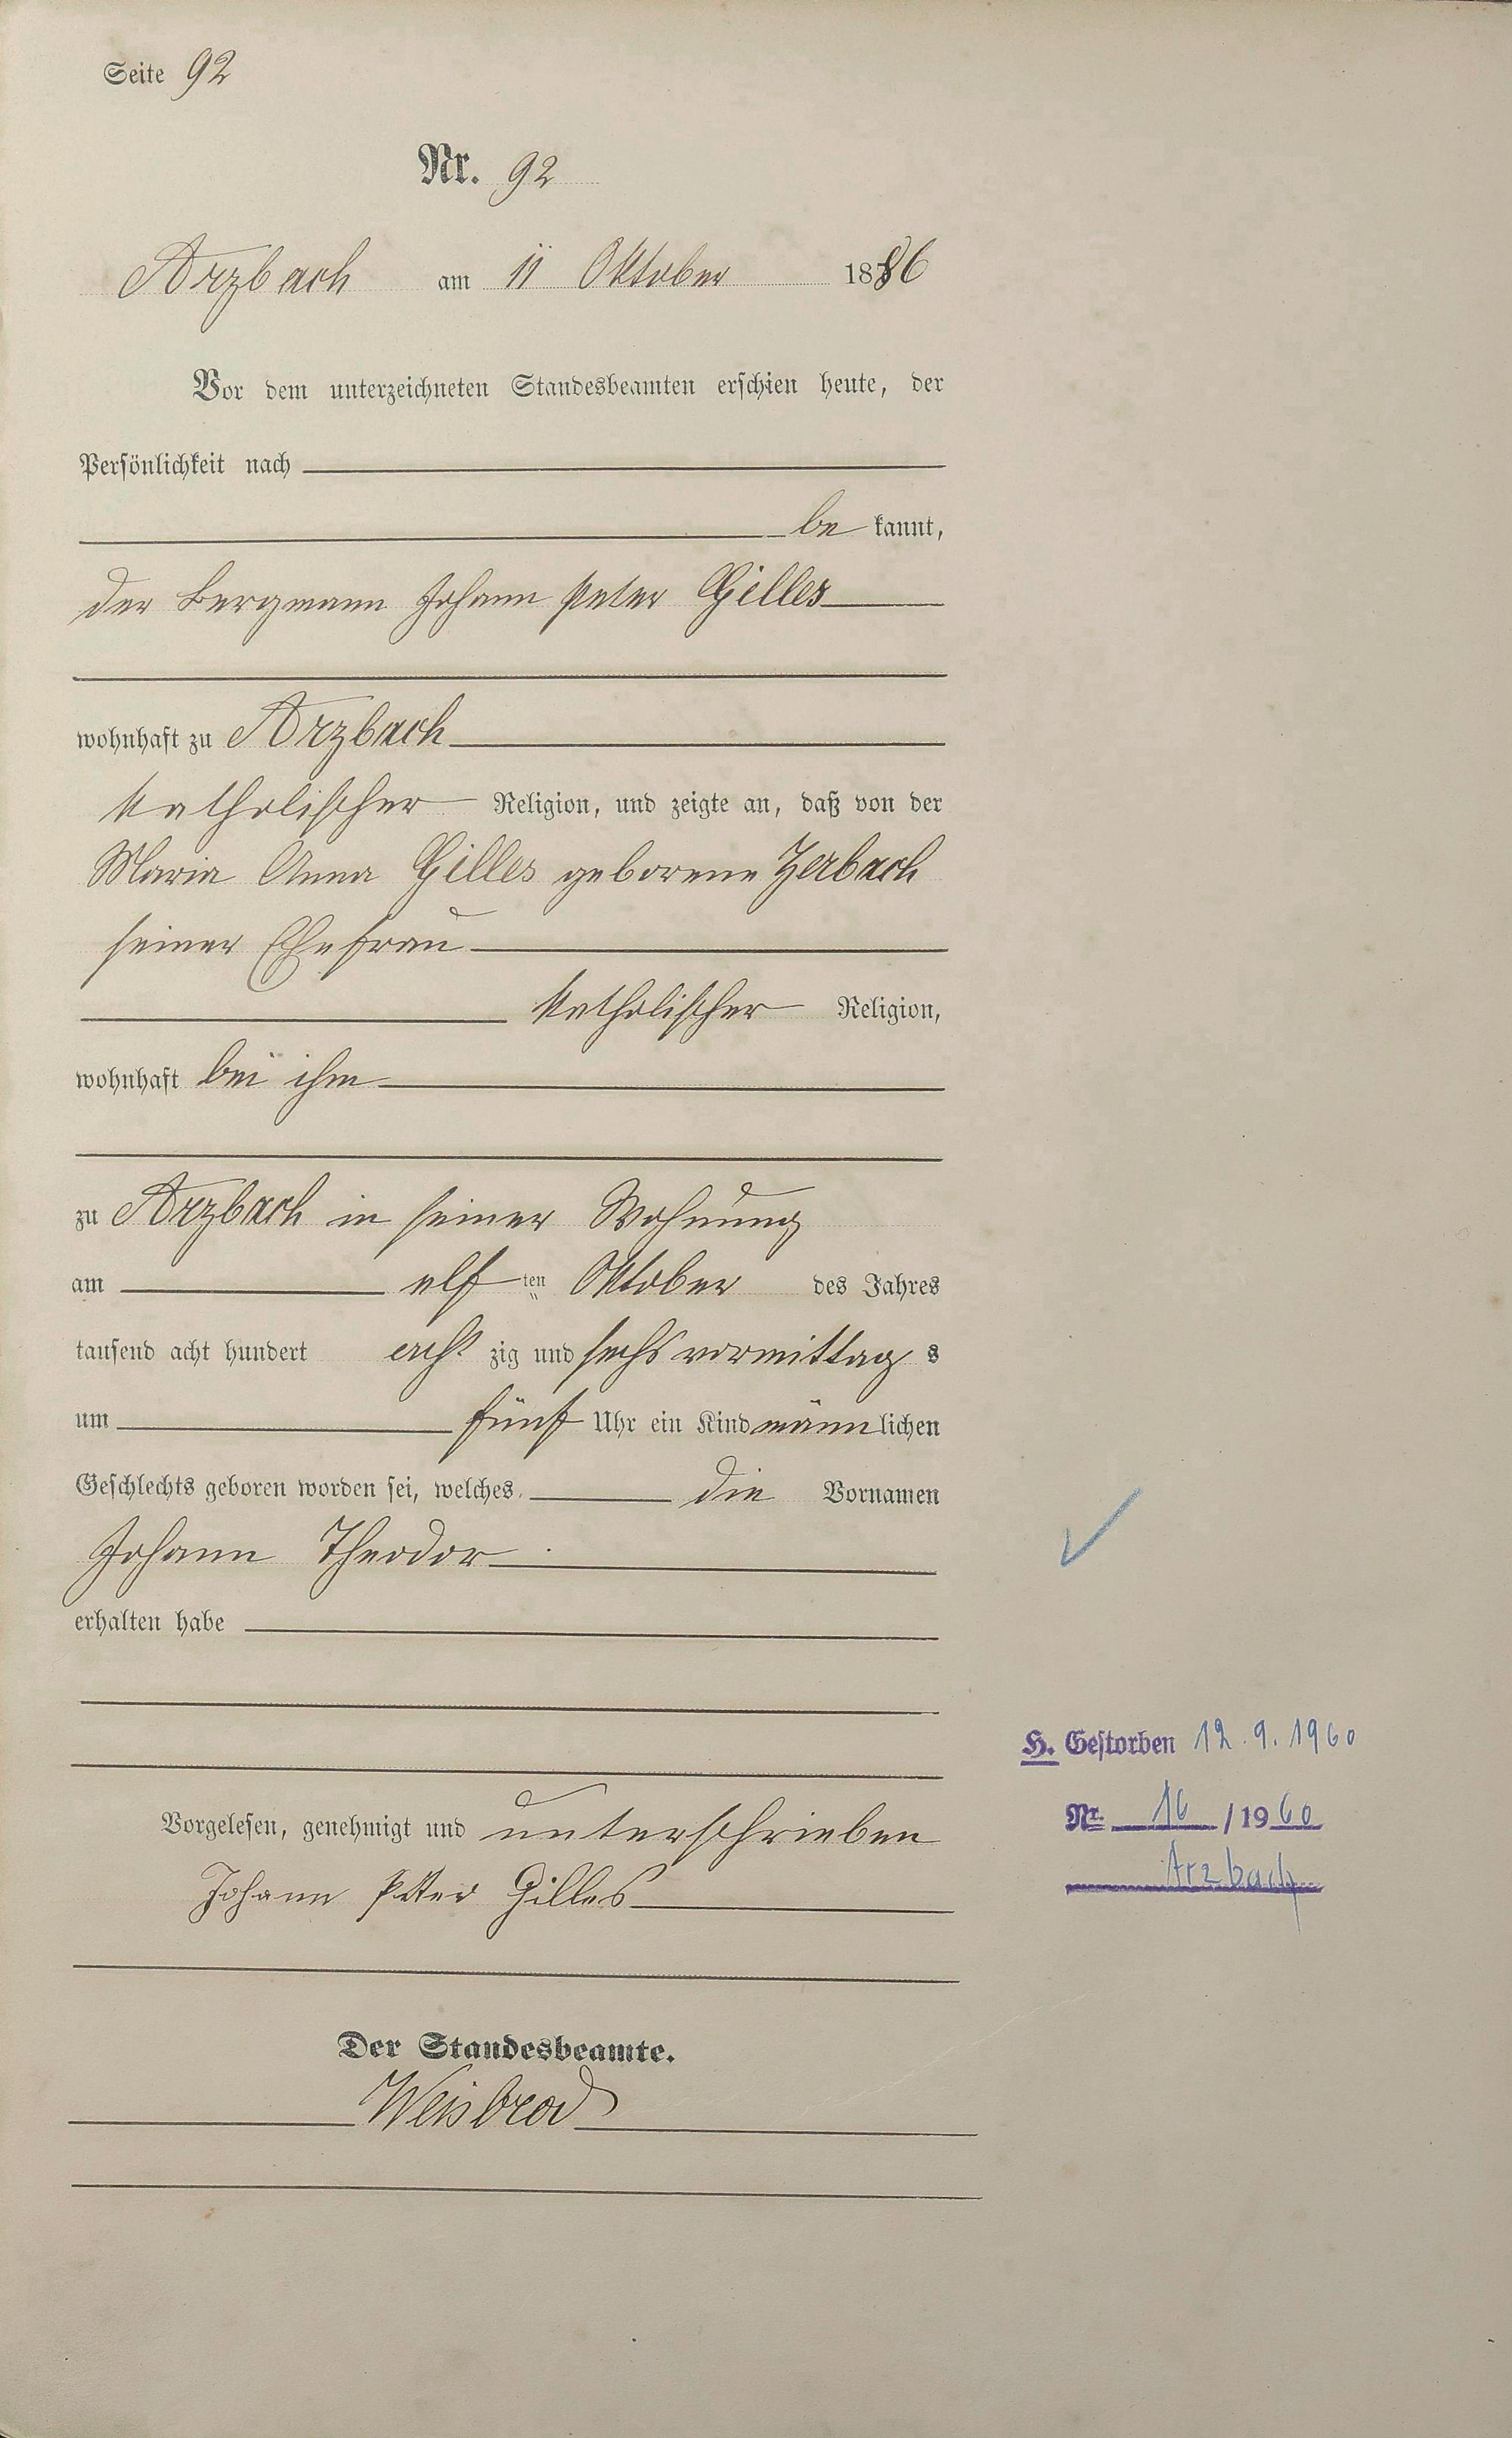 Seite 92
Nr. 92
Arzbach am 11 Oktober 1886
Vor dem unterzeichneten Standesbeamten erschien heute, der
Persönlichkeit nach
be kannt,
der Bergmann Johann Peter Gilles
wohnhaft zu Arzbach
katholischer Religion, und zeigte an, daß von der
Maria Anna Gilles geborene Zerbach
seiner Ehefrau
katholischer Religion,
wohnhaft bei ihm
zu Arzbach in seiner Wohnung
am elf ten Oktober des Jahres
tausend acht hundert acht zig und sechs vormittag s
um fünf Uhr ein Kind männ lichen
Geschlechts geboren worden sei, welches die Vornamen
Johann Theodor
erhalten habe
H. Gestorben 12.9.1960
Nr. 16 / 1960
Arzbach
Vorgelesen, genehmigt und unterschrieben
Johann Peter Gilles
Der Standesbeamte.
Weisbrod